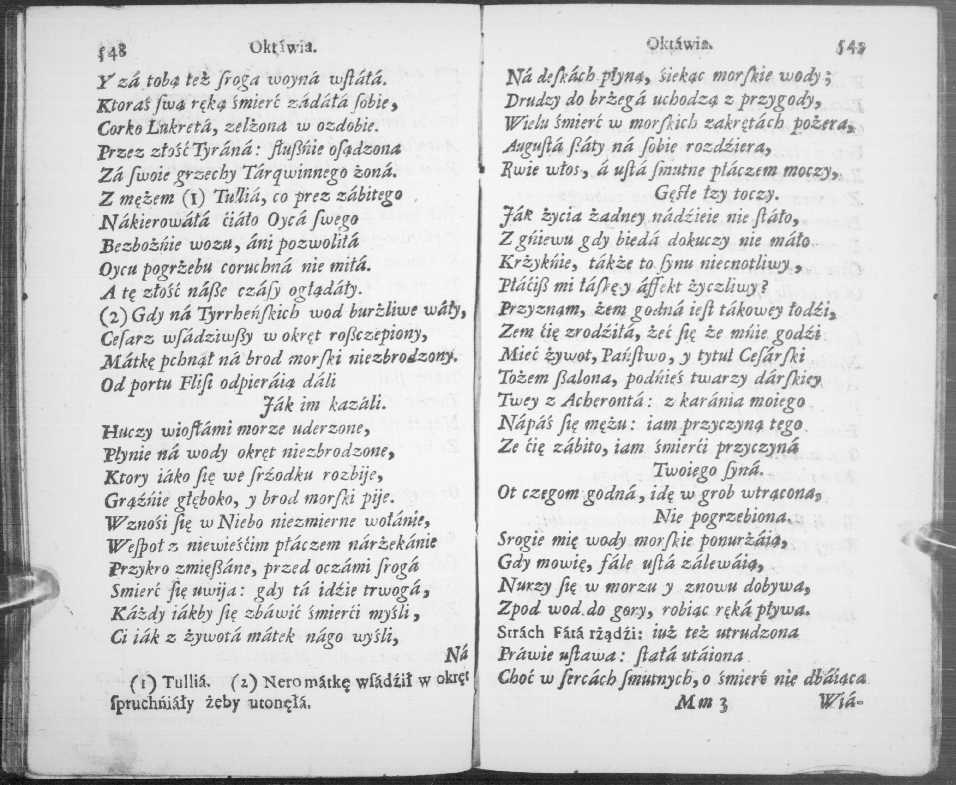 548 Oktáwia.
Y zá tobą też ſroga woyná wſtáłá.
Ktoraś ſwą ręką śmierć zádáłá ſobie,
Corko Lukretá, zelżona w ozdobie.
Przez złość Tyráná: ſłußńie oſądzona
Zá ſwoie grzechy Tárqwinnego żoná.
Z mężem (1) Tulliá, co prez zábitego
Nákierowáłá ćiáło Oycá ſwego
Bezbożńie wozu, áni pozwoliłá
Oycu pogrżebu coruchná nie miłá.
A tę złość náße czáſy oglądáły.
(2) Gdy ná Tyrrheńſkich wod burżliwe wáły,
Ceſarz wſádziwſßy w okręt roßczepiony,
Mátkę pchnął ná brod morſki niezbrodzony.
Od portu Fliſi odpieráią dáli
Ják im kazáli.
Huczy wioſłámi morze uderzone,
Płynie ná wody okręt niezbrodzone,
Ktory iáko ſię we ſrźodku rozbije,
Grąźńie głęboko, y brod morſki pije.
Wznośi ſię w Niebo niezmierne wołánie,
Weſpoł z niewieśćim płáczem nárżekánie
Przykro zmięßáne, przed oczámi ſrogá
Smierć ſię uwija: gdy tá idźie trwogá,
Káżdy iákby ſię zbáwić śmierći myśli,
Ci iák z żywotá mátek nágo wyśli,
Ná
(1) Tulliá. (2) Nero mátkę wſádźił w okręt
ſpruchńiáły żeby utonęłá.
Oktáwia. 549
Ná deſkách płyną, śiekąc morſkie wody;
Drudzy do brżegá uchodzą z przygody,
Wielu śmierć w morſkich zakrętách pożera,
Auguſtá ßáty ná ſobie rozdźiera,
Rwie włos, á uſtá ſmutne płáczem moczy,
Gęſte łzy toczy.
Ják życia żadney nádźieie nie ſtáło,
Z gńiewu gdy biedá dokuczy nie máło
Krżykńie, tákże to ſynu niecnotliwy,
Płáćiß mi łáſkę y áffekt życzliwy?
Przyznąm, żem godná ieſt tákowey łodźi,
Zem ćię zrodźiłá, żeć ſię że mńie godźi
Mieć żywot, Páńſtwo, y tytuł Ceſárſki
Tożem ßalona, podńieś twarzy dárſkiey
Twey z Acherontá: z karánia moiego
Nápáś ſię mężu: iam przyczyną tego
Ze ćię zábito, iam śmierći przyczyná
Twoiego ſyná.
Ot czegom godná, idę w grob wtrącona,
Nie pogrzebiona.
Srogie mię wody morſkie ponurżáią,
Gdy mowię, fále uſtá zálewáią,
Nurzy ſię w morzu y znowu dobywa,
Zpod wod do gory, robiąc ręká pływa.
Strách Fátá rżądźi: iuż też utrudzona
Práwie uſtawa: ſtałá utáiona
Choć w ſercách ſmutnych, o śmierć nie dbáiąca
Mm 3 Wiá-